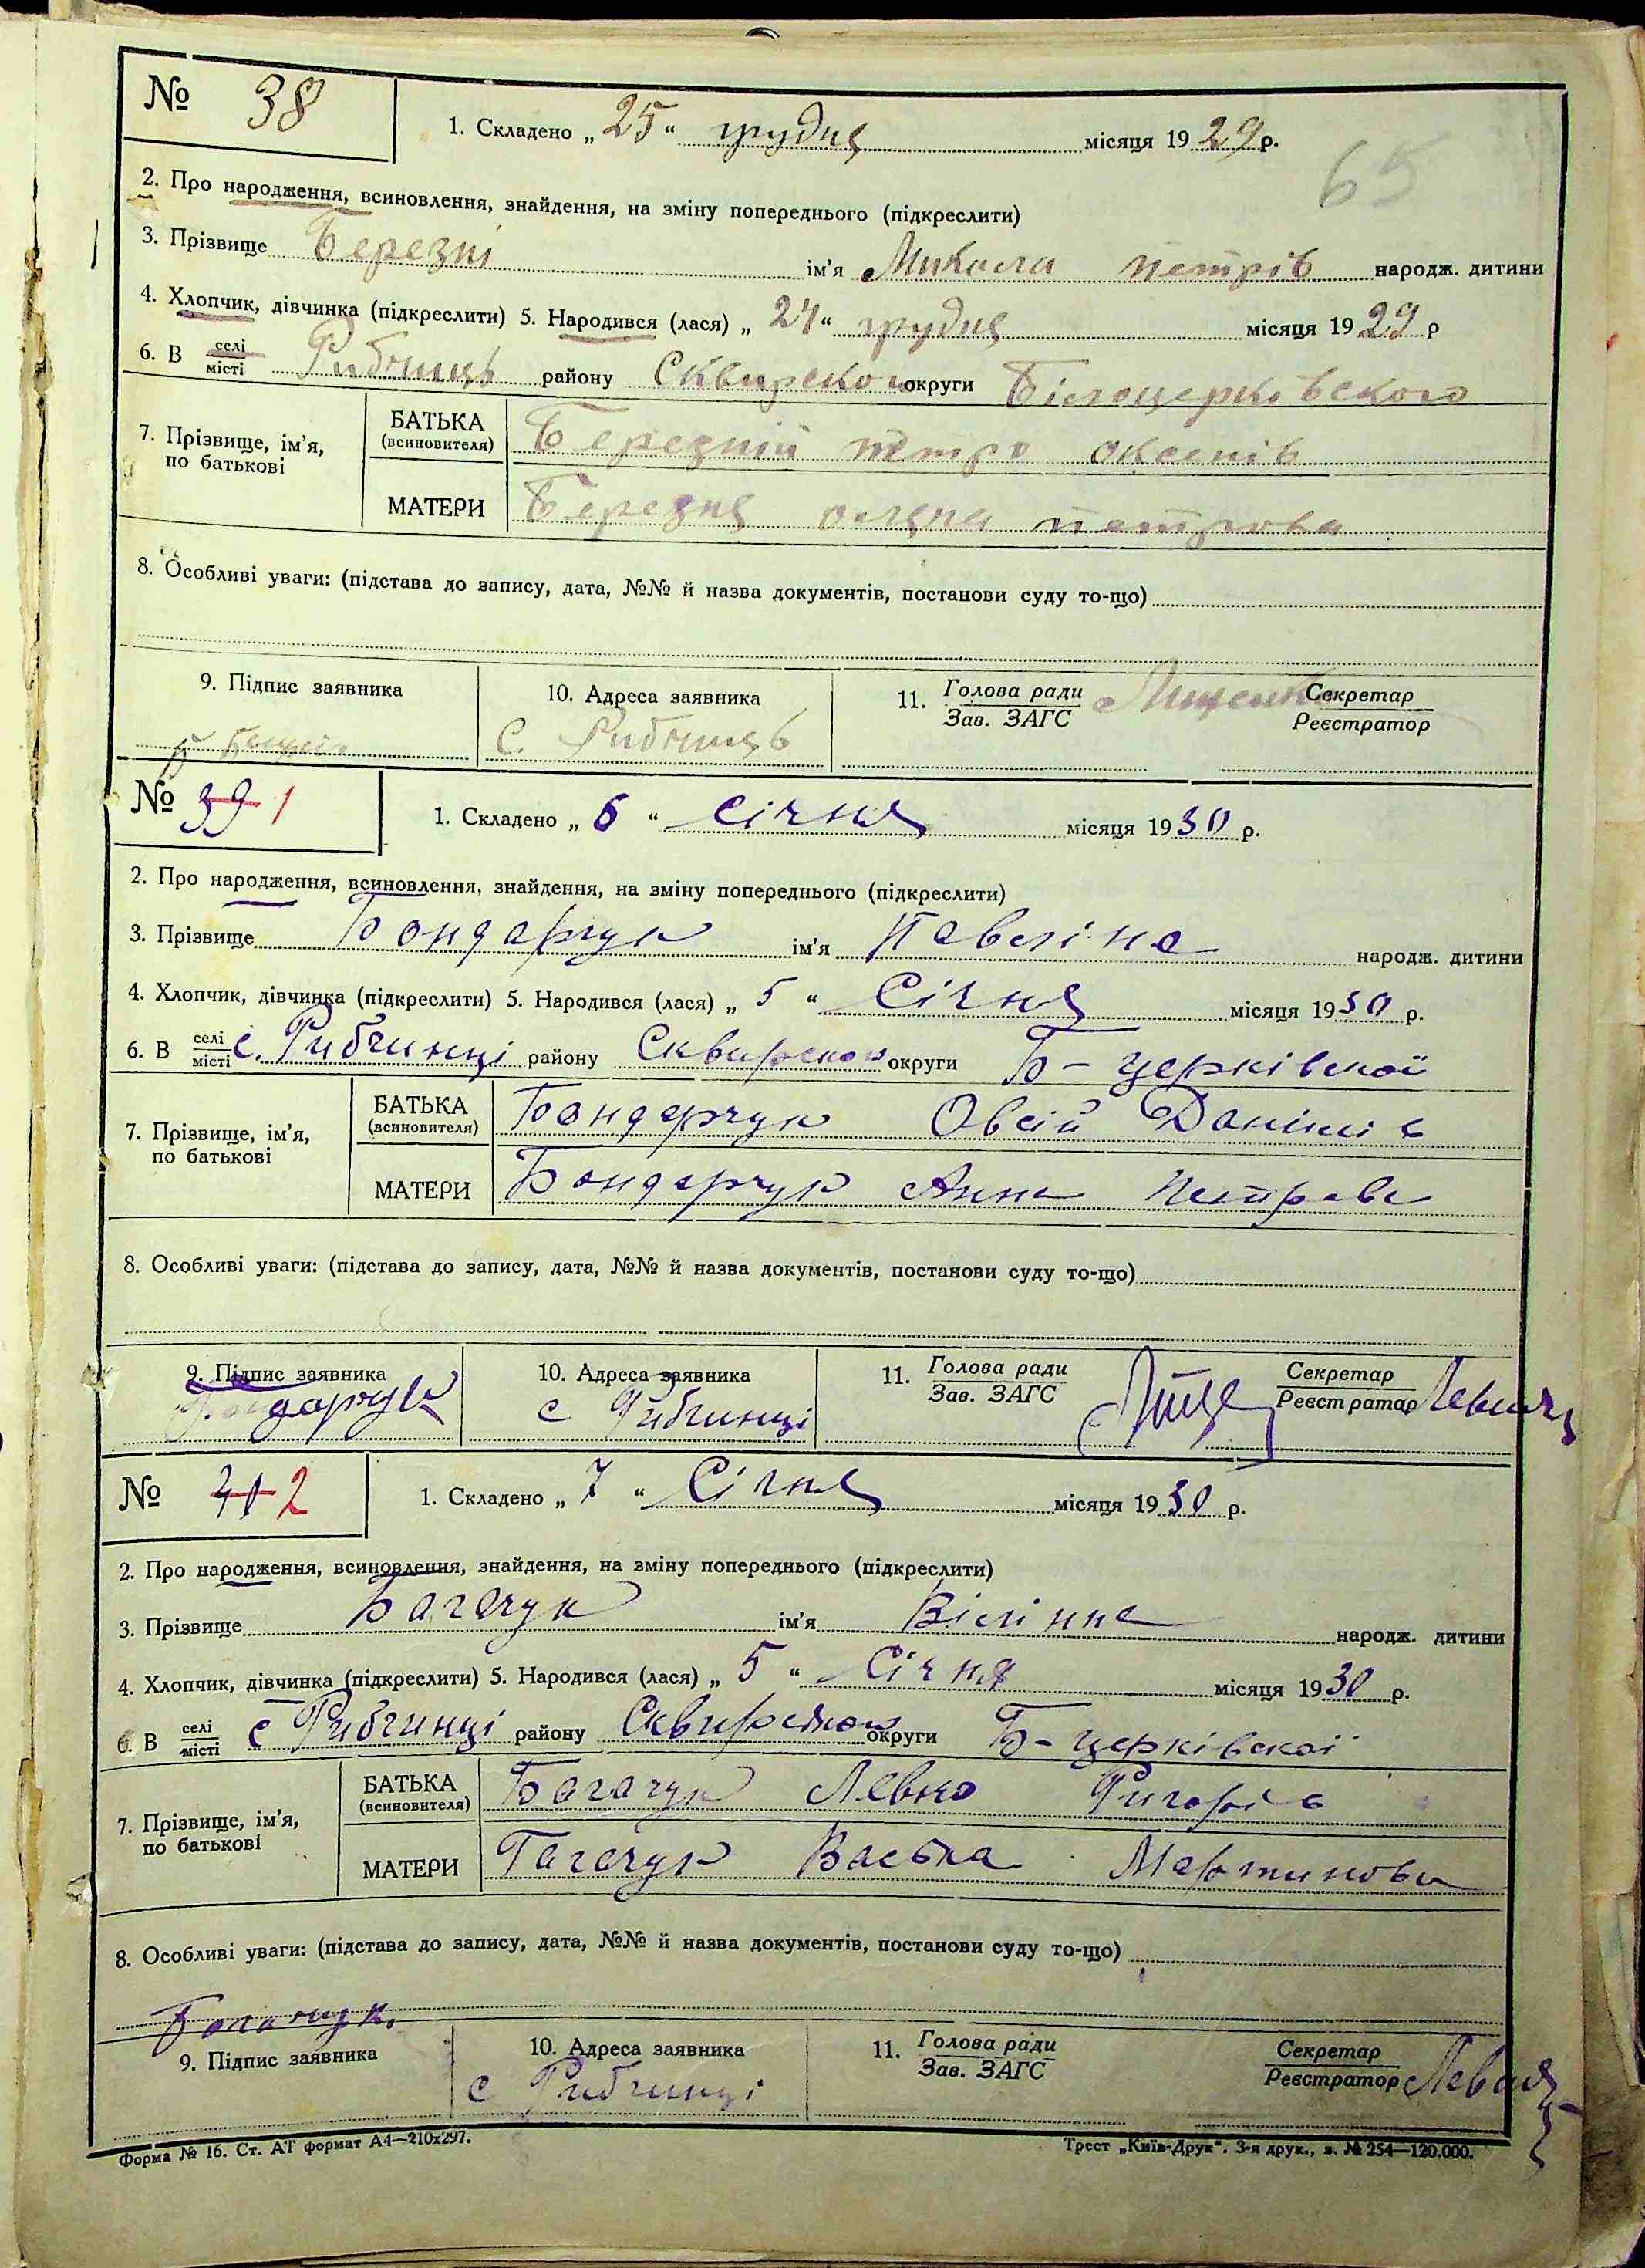 № 38
1. Складено „ 25 “ грудня місяця 19 29 р.
65
2. Про народження, всиновлення, знайдення, на зміну попереднього (підкреслити)
3. Прізвище Березні ім’я Микола петрів народж. дитини
4. Хлопчик, дівчинка (підкреслити) 5. Народився (лася) „ 24 “ грудня місяця 19 29 р
6. В селі місті Рибчинць району Сквирского округи Білоцерківского
7. Прізвище, ім’я, по батькові
БАТЬКА (всиновителя) Березний петро
МАТЕРИ Березня оляна петрова
8. Особливі уваги: (підстава до запису, дата, №№ й назва документів, постанови суду то-що)
9. Підпис заявника
10. Адреса заявника
с. Рибчинць
11. Голова ради Зав. ЗАГС
Секретар Реєстратор
№ 39 1
1. Складено „ 6 “ січня місяця 19 30 р.
2. Про народження, всиновлення, знайдення, на зміну попереднього (підкреслити)
3. Прізвище Бондарчук ім’я Павліна народж. дитини
4. Хлопчик, дівчинка (підкреслити) 5. Народився (лася) „ 5 “ Січня місяця 19 30 р.
6. В селі місті с. Рибчинці району Сквирского округи Б- церківскої
7. Прізвище, ім’я, по батькові
БАТЬКА (всиновителя) Бондарчук Овсій Данилів
МАТЕРИ Бондарчук Анна Петрова
8. Особливі уваги: (підстава до запису, дата, №№ й назва документів, постанови суду то-що)
9. Підпис заявника
Бондарчук
10. Адреса заявника
с Рибчинці
11. Голова ради Зав. ЗАГС
Секретар Реєстратор
№ 40 2
1. Складено „ 7 “ Січня місяця 19 30 р.
2. Про народження, всиновлення, знайдення, на зміну попереднього (підкреслити)
3. Прізвище Багачук ім’я Вілінна народж. дитини
4. Хлопчик, дівчинка (підкреслити) 5. Народився (лася) „ 5 “ Січня місяця 19 30 р.
6. В селі місті с Рибчинці району Сквирского округи Б- церківскої
7. Прізвище, ім’я, по батькові
БАТЬКА (всиновителя) Багачук Левко Григорів
МАТЕРИ Гагачук Васька Мартинова
8. Особливі уваги: (підстава до запису, дата, №№ й назва документів, постанови суду то-що)
Богачук.
9. Підпис заявника
10. Адреса заявника
с Рибчинці
11. Голова ради Зав. ЗАГС
Секретар Реєстратор
Форма № 16. Ст. АТ формат А4—210х297.
Трест „Київ-Друк“. 3-я друк., з. № 254—120.000.